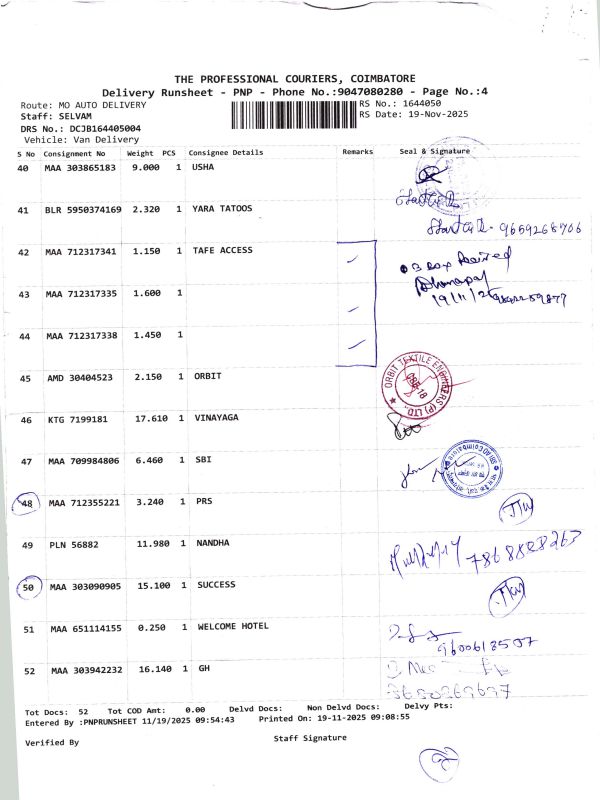 THE PROFESSIONAL COURIERS, COIMBATORE
Delivery Runsheet - PNP - Phone No.:9047080280 - Page No.:4
Route: MO AUTO DELIVERY RS No.: 1644050
Staff: SELVAM RS Date: 19-Nov-2025
DRS No.: DCJB164405004
Vehicle: Van Delivery
S No Consignment No Weight PCS Consignee Details Remarks Seal & Signature
40 MAA 303865183 9.000 1 USHA
41 BLR 5950374169 2.320 1 YARA TATOOS
9659268706
42 MAA 712317341 1.150 1 TAFE ACCESS
3 Box Received
43 MAA 712317335 1.600 1
19/11/25
44 MAA 712317338 1.450 1
45 AMD 30404523 2.150 1 ORBIT
ORBIT TEXTILE ENGINEERS (P) LTD.
46 KTG 7199181 17.610 1 VINAYAGA
47 MAA 709984806 6.460 1 SBI
48 MAA 712355221 3.240 1 PRS
49 PLN 56882 11.980 1 NANDHA
7868828263
50 MAA 303090905 15.100 1 SUCCESS
51 MAA 651114155 0.250 1 WELCOME HOTEL
9600613507
52 MAA 303942232 16.140 1 GH
Tot Docs: 52 Tot COD Amt: 0.00 Delvd Docs: Non Delvd Docs: Delvy Pts:
Entered By :PNPRUNSHEET 11/19/2025 09:54:43 Printed On: 19-11-2025 09:08:55
Verified By Staff Signature